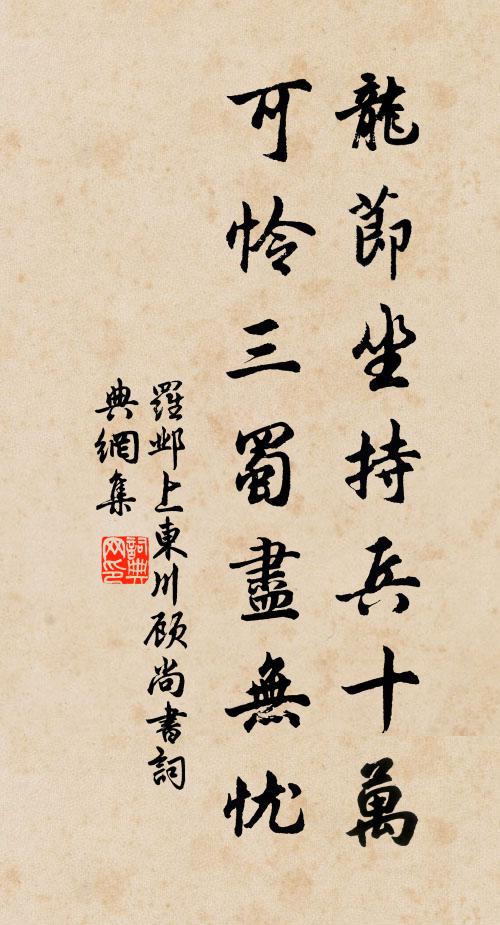 龍節坐持兵十萬
可怜三蜀盡無忧
羅邺上東川顾尚書詞
典網集
詞典网印